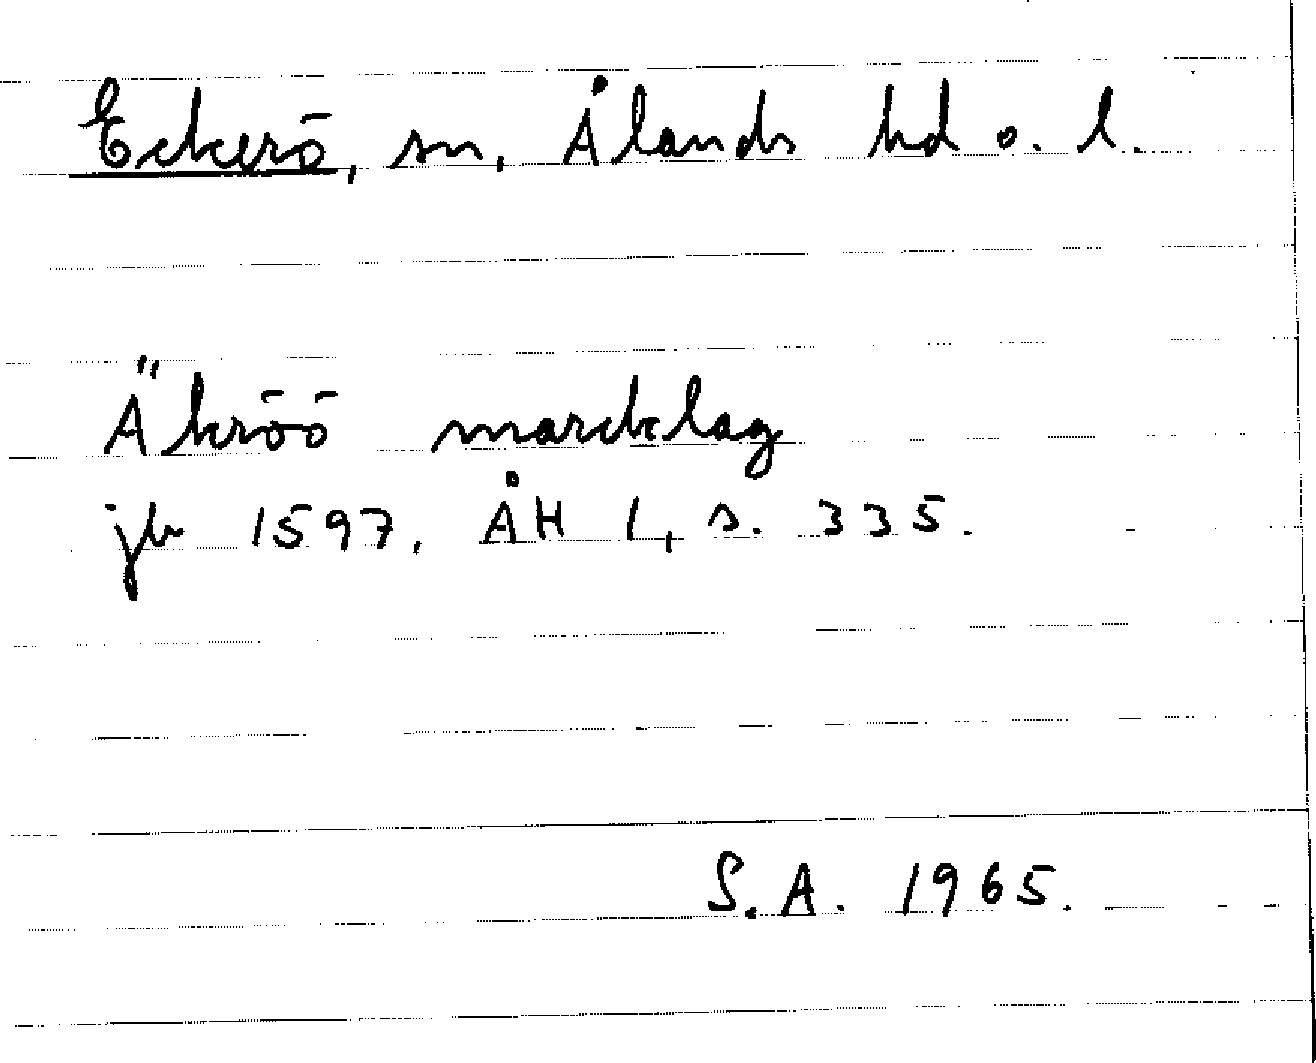 Eckerö, sn, Ålands hd o. l.
Äkröö marcklag
jb 1597, ÅH I, s. 335.
S.A. 1965.